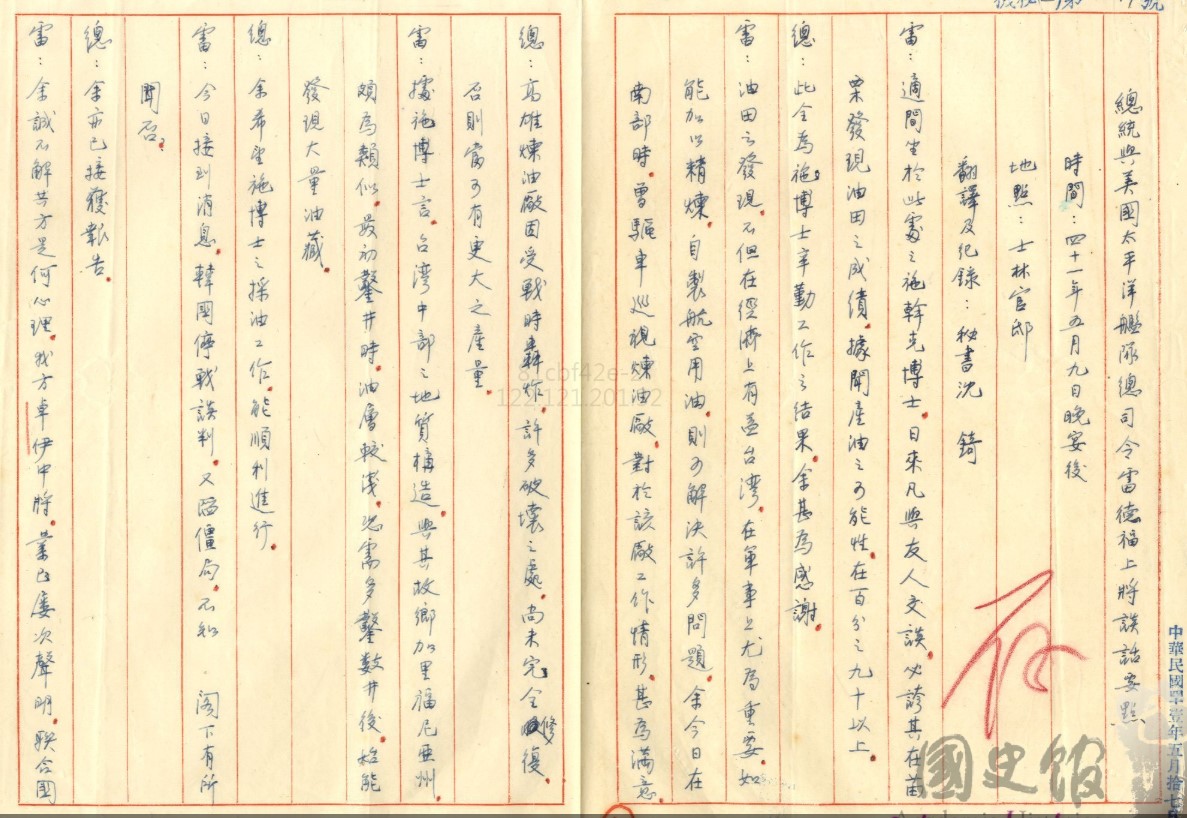 總統與美國太平洋艦隊總司令雷德福上將談話要點
時間：四十一年五月九日晚宴後
地點：士林官邸
翻譯及紀錄：秘書沈錡
雷：適間坐於此處之施幹克博士，日來凡與友人交談，必誇其在苗
栗發現油田之成績，據聞產油之可能性，在百分之九十以上。
總：此全為施博士辛勤工作之結果，余甚為感謝。
雷：油田之發現，不但在經濟上有益台灣，在軍事上尤為重要，如
能加以精煉，自製航空用油，則可解決許多問題。余今日在
南部時，曾驅車巡視煉油廠，對於該廠工作情形，甚為滿意。
總：高雄煉油廠因受戰時轟炸，許多破壞之處，尚未完全修復，
否則當可有更大之產量。
雷：據施博士言，台灣中部之地質構造，與其故鄉加里福尼亞州
頗為類似，最初鑿井時，油層較淺，恐需多鑿數井後，始能
發現大量油藏。
總：余希望施博士之採油工作，能順利進行。
雷：今日接到消息，韓國停戰談判，又陷僵局，不知 閣下有所
聞否。
總：余亦已接獲報告。
雷：余誠不解共方是何心理，我方卓伊中將，業已屢次聲明，聯合國
中華民國四壹年五月拾七日
國史館
122.121.201.2